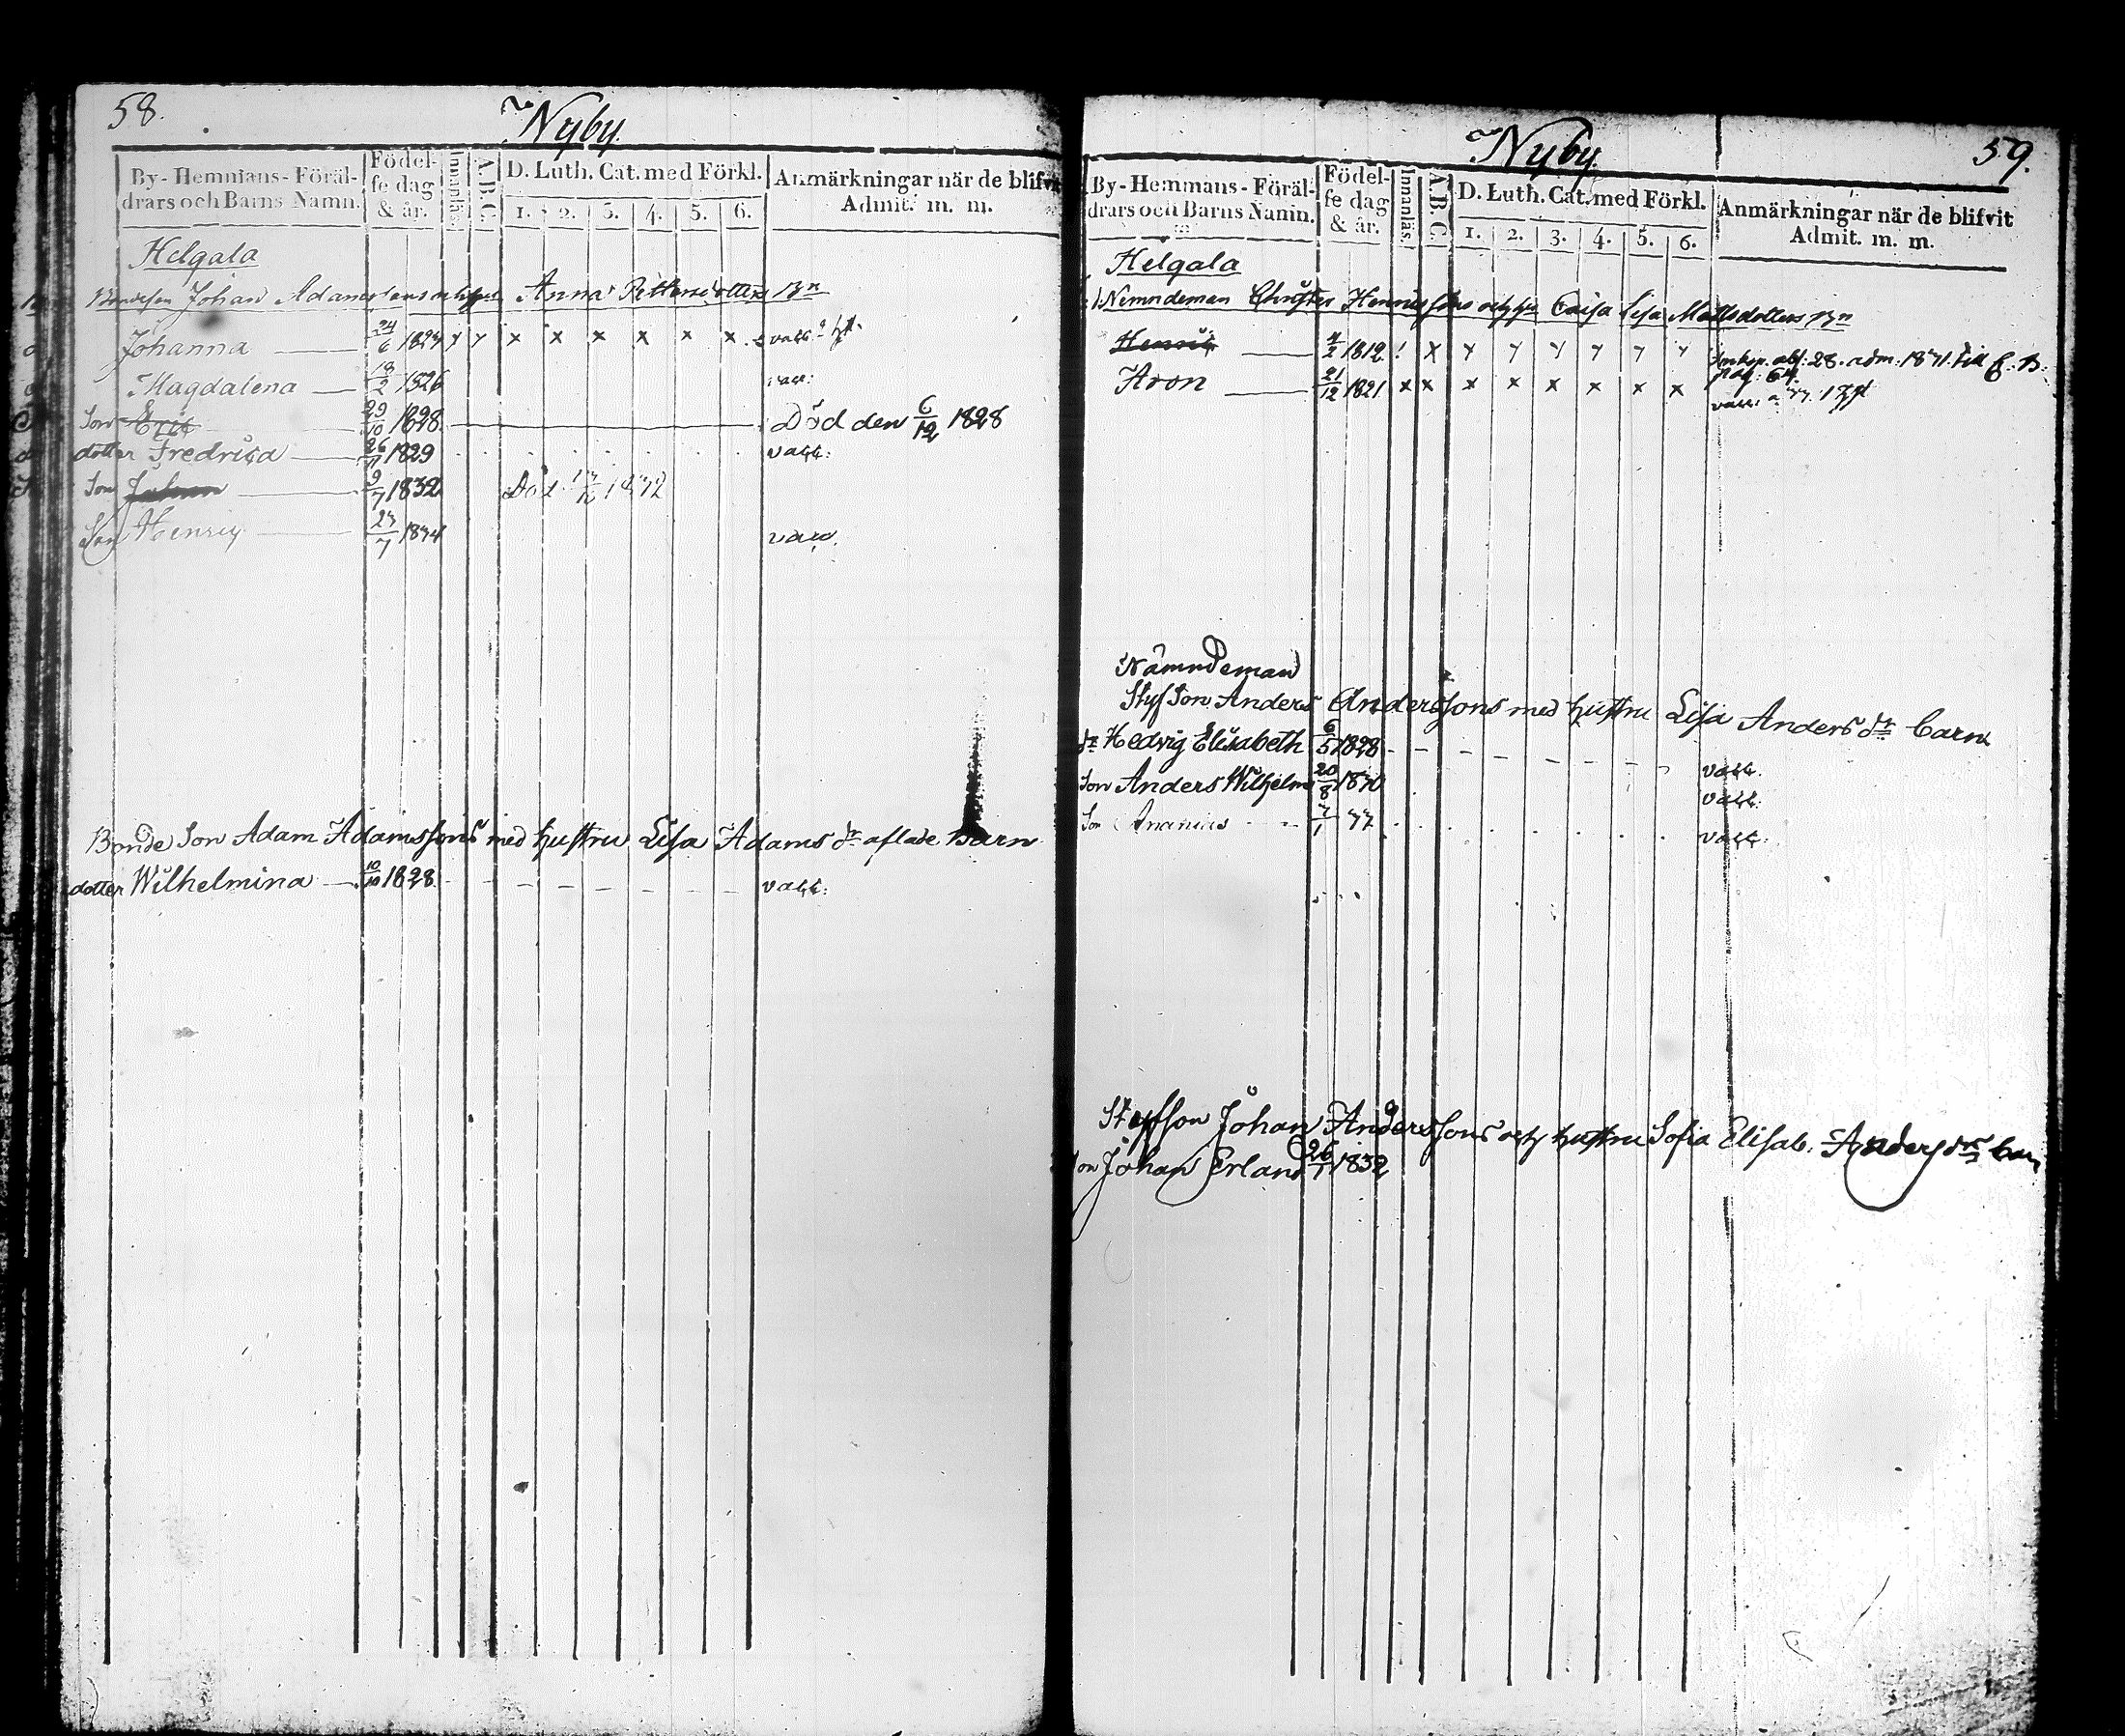 58.
Nyby.
By-Hemmans-Föräl-
drars och Barns Namn.
Födel-
se dag
& år.
Innanläs.
A.B.C.
D. Luth. Cat. med Förkl.
1. 2. 3. 4. 5. 6.
Anmärkningar när de blifvit
Admit. m. m.
Helgala
Bondeson Johan Adamssons Anna Pettersdotters Bn
Johanna 24/6 1824 x x x x x x
Magdalena 18/2 1826
Son Eric 29/10 1828 Död den 6/12 1828
dotter Fredrica 26/11 1829 vacc:
Son Johan 9/7 1832 Död
Son Henric 23/7 1834 vacc.
Bonde Son Adam Adamssons med hustru Lisa Adams dr aflade Barn
dotter Wilhelmina 10/10 1828 vacc:
Nyby
59.
By-Hemmans-Föräl-
drars och Barns Namn.
Födel-
se dag
& år.
Innanläs.
A.B.C.
D. Luth. Cat. med Förkl.
1. 2. 3. 4. 5. 6.
Anmärkningar när de blifvit
Admit. m. m.
Helgala
Nemndeman Christer Henricssons och hu Caisa Lisa Mattsdotters Bn
Henric 4/2 1812
pag: 64
Aron 21/12 1821 x x x x x x x x
Nämndeman
Styf Son Anders Anderssons med hustru Lisa Anders dr barn
dr Hedvig Elisabeth 6/5 1828 vacc.
Son Anders Wilhelm 20/8 1830 vacc:
Son Ananias 7/1 33 vacc:
Styfson Johan Anderssons och hustru Sofia Elisab. Anders drs barn
Son Johan Erland 26/1 1832